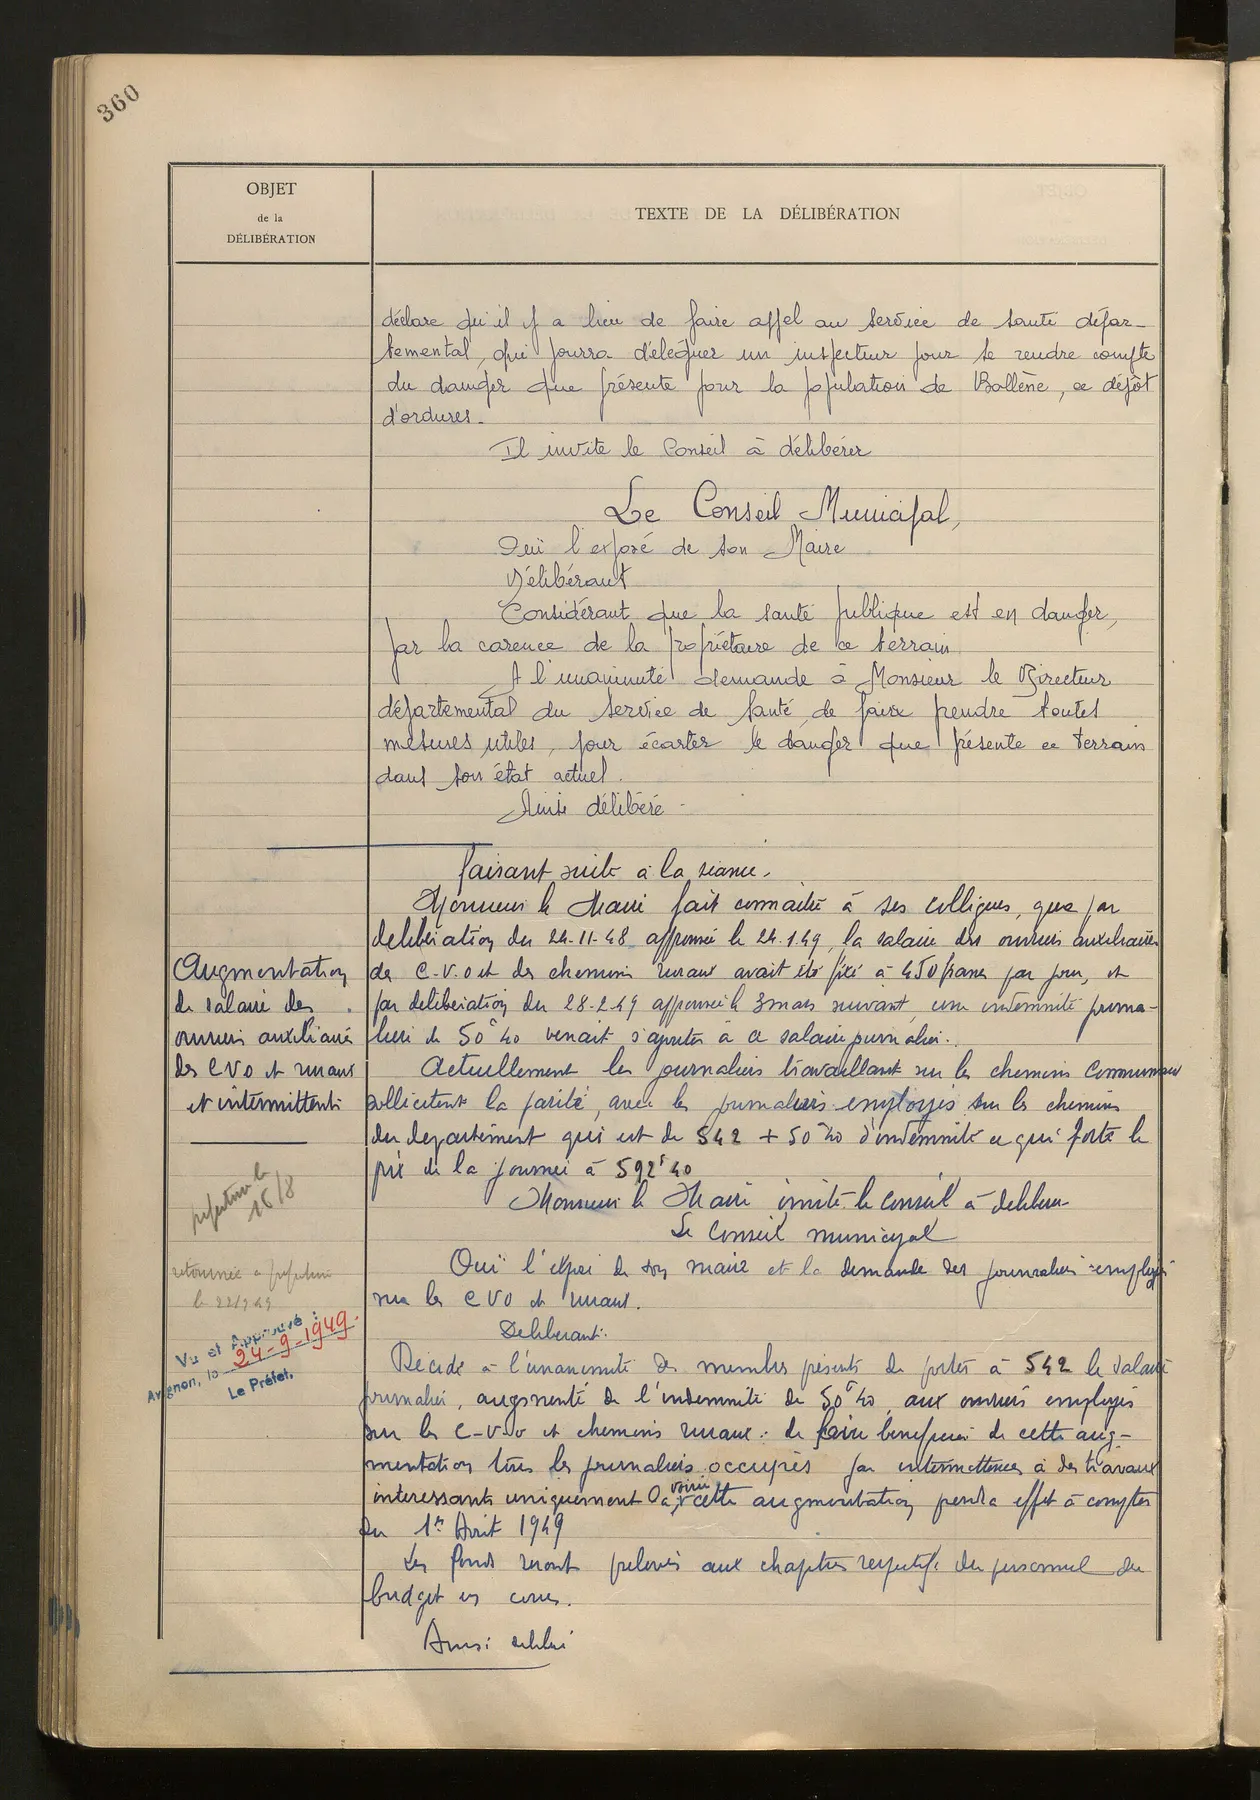 360
OBJET
de la
DÉLIBÉRATION
TEXTE DE LA DÉLIBÉRATION
déclare qu'il y a lieu de faire appel au service de santé dépar-
temental, qui pourra déléguer un inspecteur pour se rendre compte
du danger que présente pour la population de Bollène, ce dépôt
d'ordures.
Il invite le Conseil à délibérer
Le Conseil Municipal,
Oui l'exposé de son Maire
Délibérant
Considérant que la santé publique est en danger,
par la carence de la propriétaire de ce terrain
A l'unanimité demande à Monsieur le Directeur
départemental du service de santé, de faire prendre toutes
mesures utiles, pour écarter le danger que présente ce terrain
dans son état actuel.
Ainsi délibéré -
faisant suite à la séance.
Monsieur le Maire fait connaitre à ses collègues, que par
délibération du 24-11-48 approuvée le 24.1.49, la salaire des ouvriers auxiliaires
de C.V.O et des chemins ruraux avait été fixé à 450 francs par jour, et
par délibération du 28-2-49 approuvée le 3 mars suivant, une indemnité journa-
lière de 50f 40 venait s'ajouter à ce salaire journalier.
Actuellement les journaliers travaillant sur les chemins communaux
sollicitent la parité, avec les journaliers employés sur les chemins
du département qui est de 542 + 50f40 d'indemnité ce qui porte le
prix de la journée à 592f40
Monsieur le Maire invite le conseil à délibérer
Le Conseil municipal
Ouï l'exposé de son maire et la demande des journaliers employés
sur les CVO et ruraux.
Délibérant.
Décide à l'unanimité des membres présents de porter à 542 le salaire
journalier, augmenté de l'indemnité de 50f40, aux ouvriers employés
sur les C-V-O et chemins ruraux. de faire bénéficier de cette aug-
mentation tous les journaliers occupés par intermittences à des travaux
intéressants uniquement la voirie cette augmentation prendra effet à compter
du 1er Août 1949
Les fonds seront prélevés aux chapitres respectifs du personnel du
budget en cours.
Ainsi délibéré
Augmentation
de salaire des
ouvriers auxiliaires
des CVO et ruraux
et intermittents
préfecture le
16/8
retournée a préfecture
le 22/9 49
Vu et Approuvé :
Avignon, le 24-9-1949.
Le Préfet,